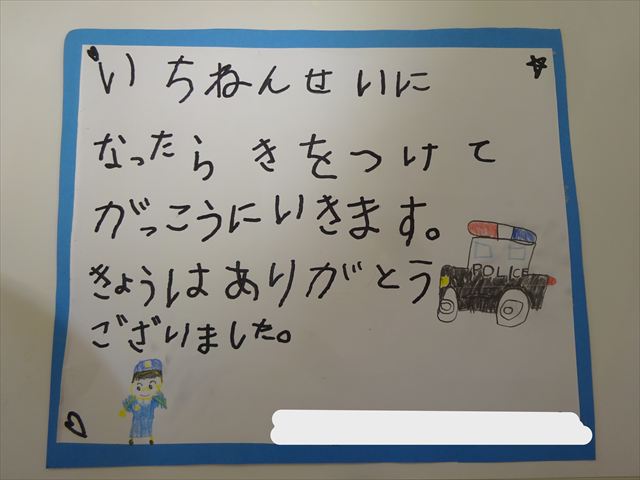 いちねんせいに
なったら きをつけて
がっこうにいきます。
きょうはありがとう
ございました。
POLICE